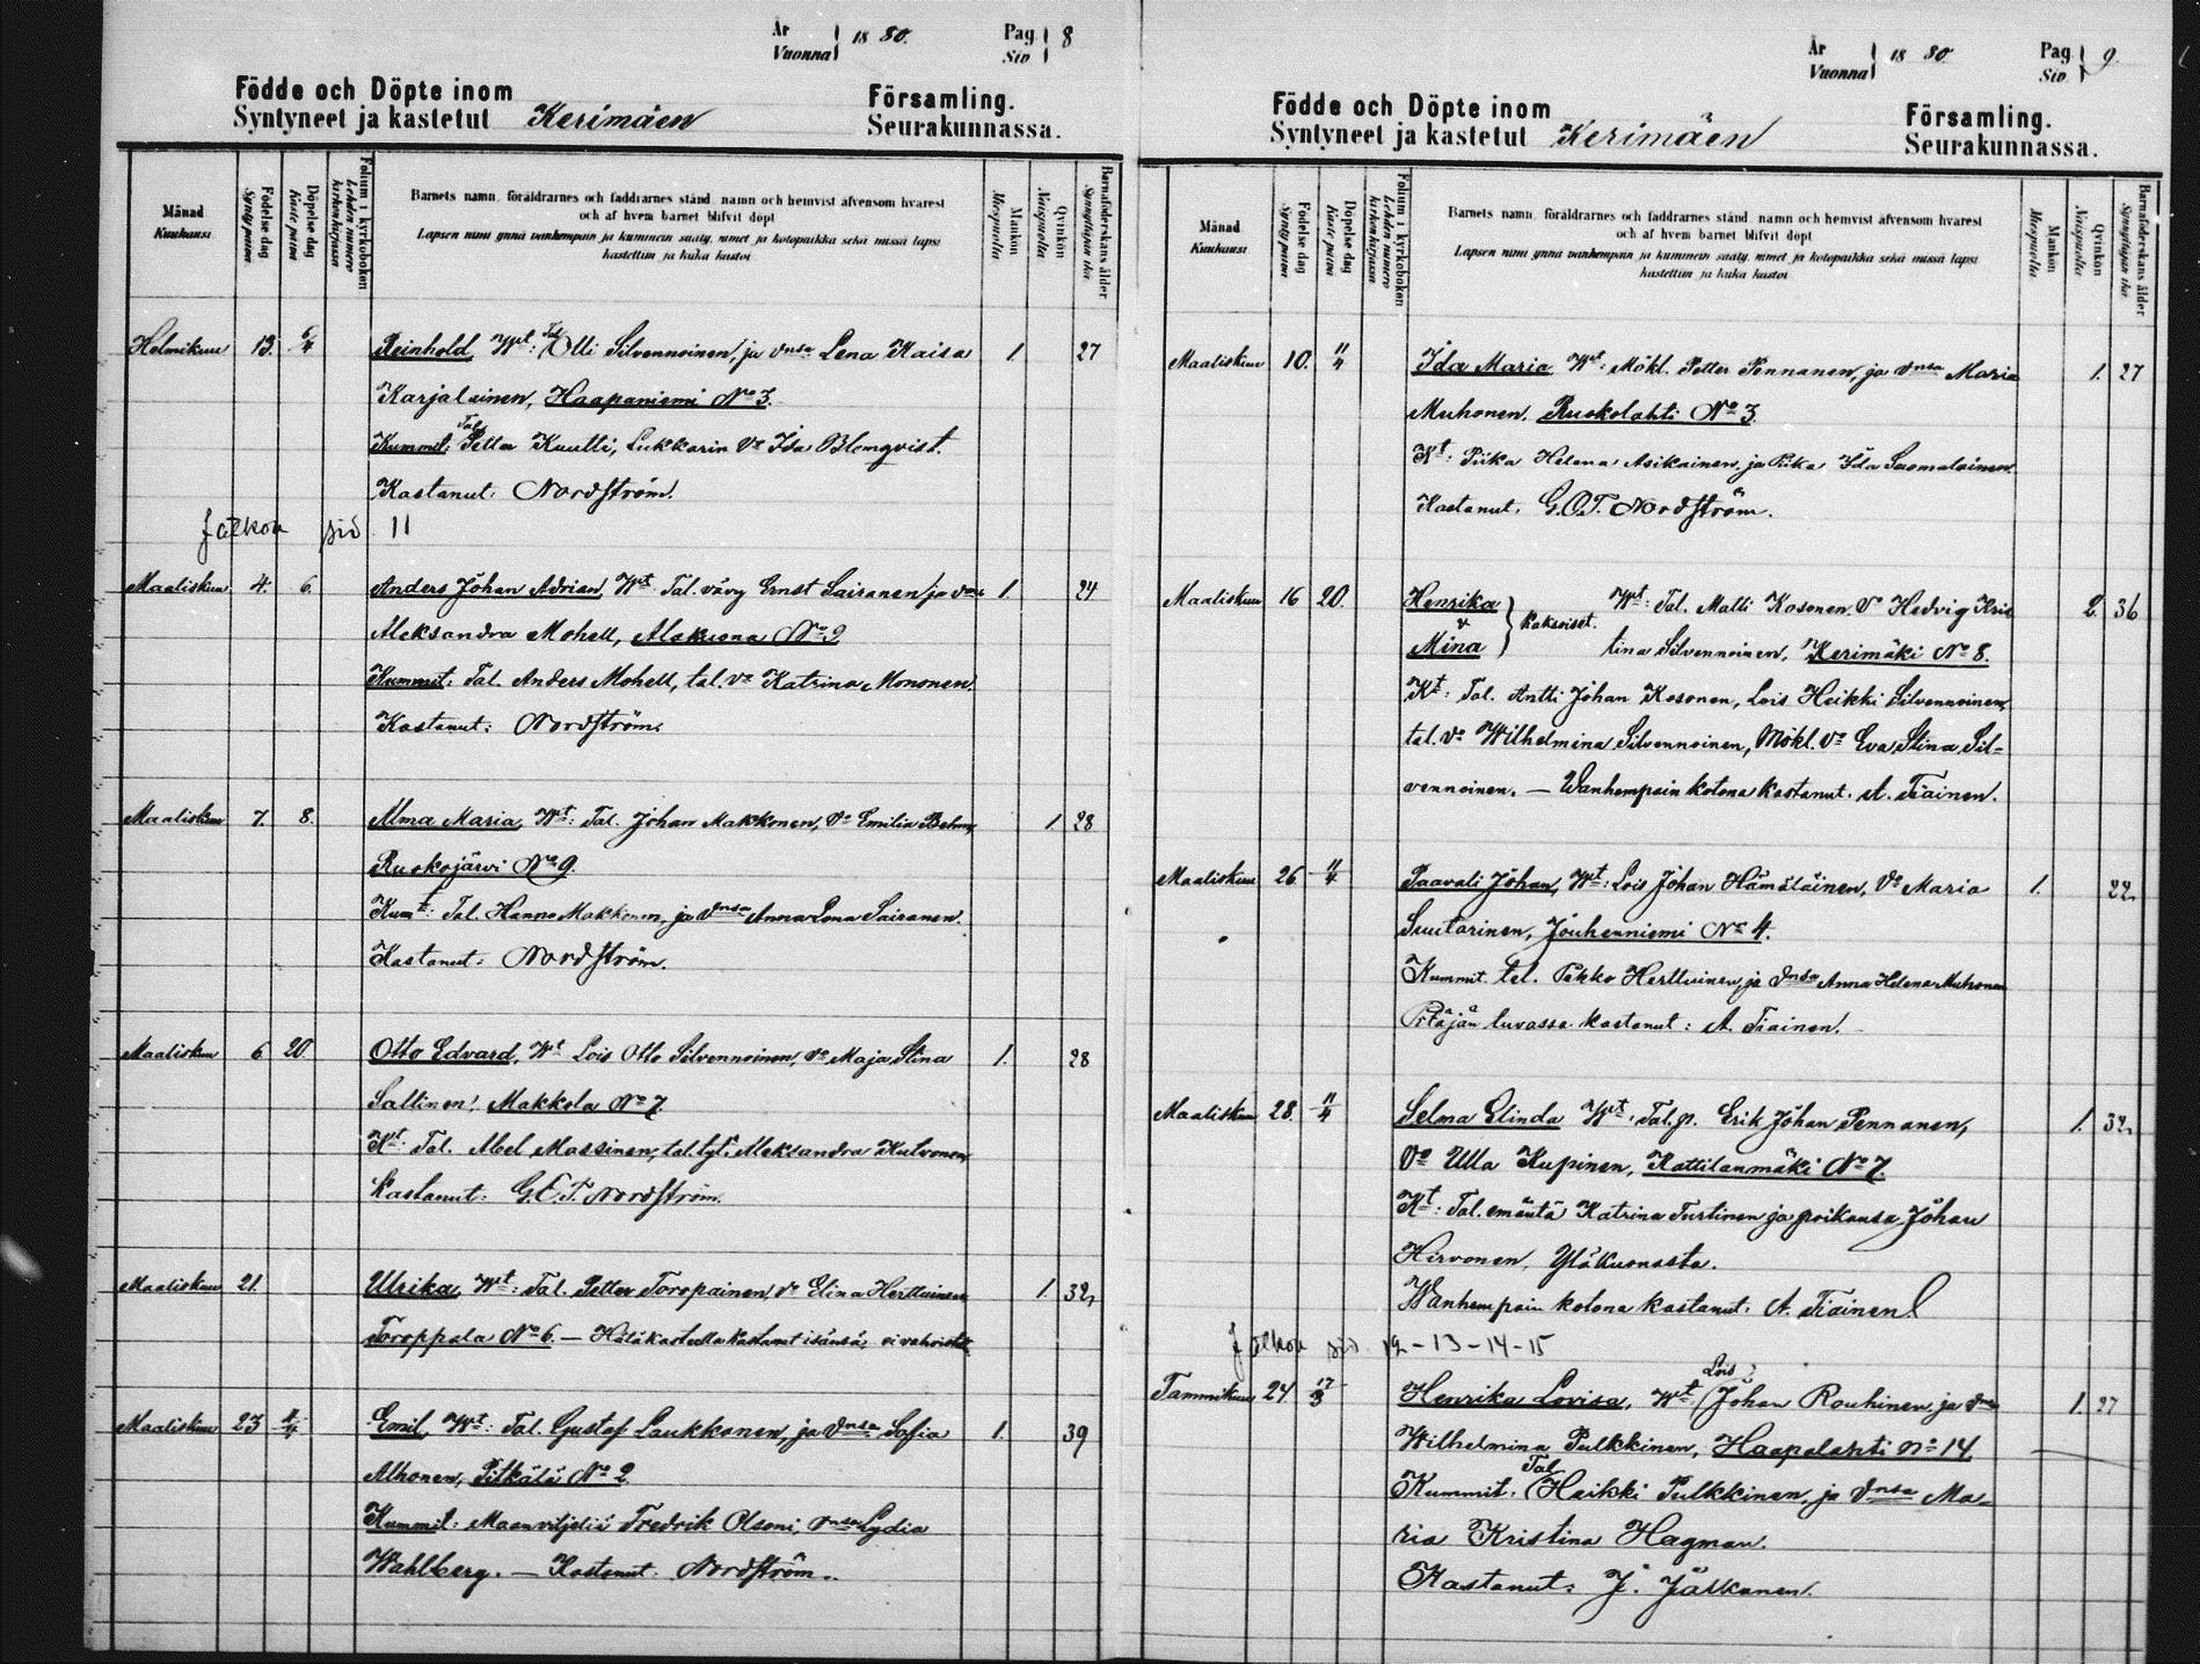 År
Vuonna 18 80. Pag Siv 8
Födde och Döpte inom Församling.
Syntyneet ja kastetut Kerimäen Seurakunnassa.
Månad Kuukausi
Födelse dag Synty päivä
Döpelse dag Kaste päivä
Folium i kyrkoboken Lehden numero kirkonkirjassa
Barnets namn, föräldrarnes och faddrarnes stånd, namn och hemvist äfvensom hvarest
och af hvem barnet blifvit döpt
Lapsen nimi ynnä vanhempain ja kummein sääty, nimet ja kotopaikka sekä missä lapsi
kastettiin ja kuka kastoi
Mankön Miespuolia
Qvinkön Naispuolia
Barnaföderskans ålder Synnyttäjän ikä
Helmikuu 13. 6/4 Reinhold, Wt: Tal Olli Silvennoinen, ja vnsa Lena Kaisa 1 27
Karjalainen, Haapaniemi No 3.
Kummit: Tal Petter Kuulti, Lukkarin Vo Ida Blomqvist.
Kastanut: Nordström.
Jatkoa siv 11
Maaliskuu 4. 6. Anders Johan Adrian, Wt Tal. vävy Ernst Sairanen ja vns 1. 24
Aleksandra Mohell, Alakuona No 2
Kummit: Tal. Anders Mohell, tal. vo Katrina Mononen.
Kastanut: Nordström.
Maaliskuu 7. 8. Alma Maria, Wt: Tal. Johan Makkonen, Vo Emilia Behm, 1. 28
Ruokojärvi No 9.
Kumt: Tal. Hannu Makkonen, ja vnsa Anna Lena Sairanen.
Kastanut: Nordström.
Maaliskuu 6 20. Otto Edvard, Wt Lois Otto Silvennoinen, vo Maja Stina 1. 28
Sallinen, Makkola No 7.
Kt: Tal. Abel Massinen, tal. tyt. Aleksandra Kulvonen
Kastanut: G.O.T. Nordström.
Maaliskuu 21. Ulrika Wt: Tal. Petter Toropainen, vo Elina Herttuinen 1. 32,
Toroppala No 6. — Hätäkasteella kastanut isänsä, ei vahvistettu
Maaliskuu 23 1/4 Emil, Wt: Tal. Gustaf Laukkanen, ja vnsa Sofia 1. 39
Alhonen, Pitkälä No 2
Kummit: Maanviljeliä Fredrik Olsoni, vnsa Lydia
Wahlberg. — Kastanut. Nordström.
År
Vuonna 18 80. Pag Siv. 9.
Födde och Döpte inom Församling.
Syntyneet ja kastetut Kerimäen Seurakunnassa.
Månad Kuukausi
Födelse dag Synty päivä
Döpelse dag Kaste päivä
Folium i kyrkoboken Lehden numero kirkonkirjassa
Barnets namn, föräldrarnes och faddrarnes stånd, namn och hemvist äfvensom hvarest
och af hvem barnet blifvit döpt
Lapsen nimi ynnä vanhempain ja kummein sääty, nimet ja kotopaikka sekä missä lapsi
kastettiin ja kuka kastoi
Mankön Miespuolia
Qvinkön Naispuolia
Barnaföderskans ålder Synnyttäjän ikä
Maaliskuu 10. 11/4 Ida Maria Wt: Mökl. Petter Pennanen, ja vnsa Maria 1. 27
Muhonen. Ruokolahti No 3
Kt: Piika Helena Asikainen, ja Piika Ida Suomalainen
Kastanut. G.O.T. Nordström.
Maaliskuu 16 20. Henrika Wt: Tal. Matti Kosonen, Vo Hedvig Kris 2. 36
& kaksoiset.
Mina tina Silvennoinen, Kerimäki No 8.
Kt: Tal. Antti Johan Kosonen, Lois Heikki Silvennoinen,
tal. vo Wilhelmina Silvennoinen, Mökl. vo Eva Stina Sil-
vennoinen. — Wanhempain kotona kastanut. A. Tiainen.
Maaliskuu 26 11/4 Paavali Johan, Wt: Lois Johan Hämäläinen, Vo Maria 1. 22,
Suutarinen, Jouhenniemi No 4.
Kummit. tal. Pekko Herttuinen, ja vnsa Anna Helena Muhonen
Pitäjän tuvassa kastanut: A. Tiainen.
Maaliskuu 28. 11/4 Selma Elinda Wt: Tal. p. Erik Johan Pennanen, 1. 32,
Vo Ulla Kupinen, Kattilanmäki No 7.
Kt: Tal. emäntä Katrina Turtinen ja poikansa Johan
Hirvonen, Yläkuonasta.
Wanhempain kotona kastanut: A. Tiainen
Jatkoa siv. 12-13-14-15
Tammikuu 24 17/3 Henrika Lovisa, Wt Lois Johan Rouhinen, ja vns 1. 27
Wilhelmina Pulkkinen, Haapalahti No 14.
Kummit. Tal Heikki Pulkkinen, ja vnsa Ma-
ria Kristina Hagman.
Kastanut: J. Jälkanen.